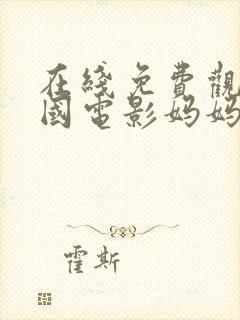 在綫免費觀
國電影媽媽
霍斯